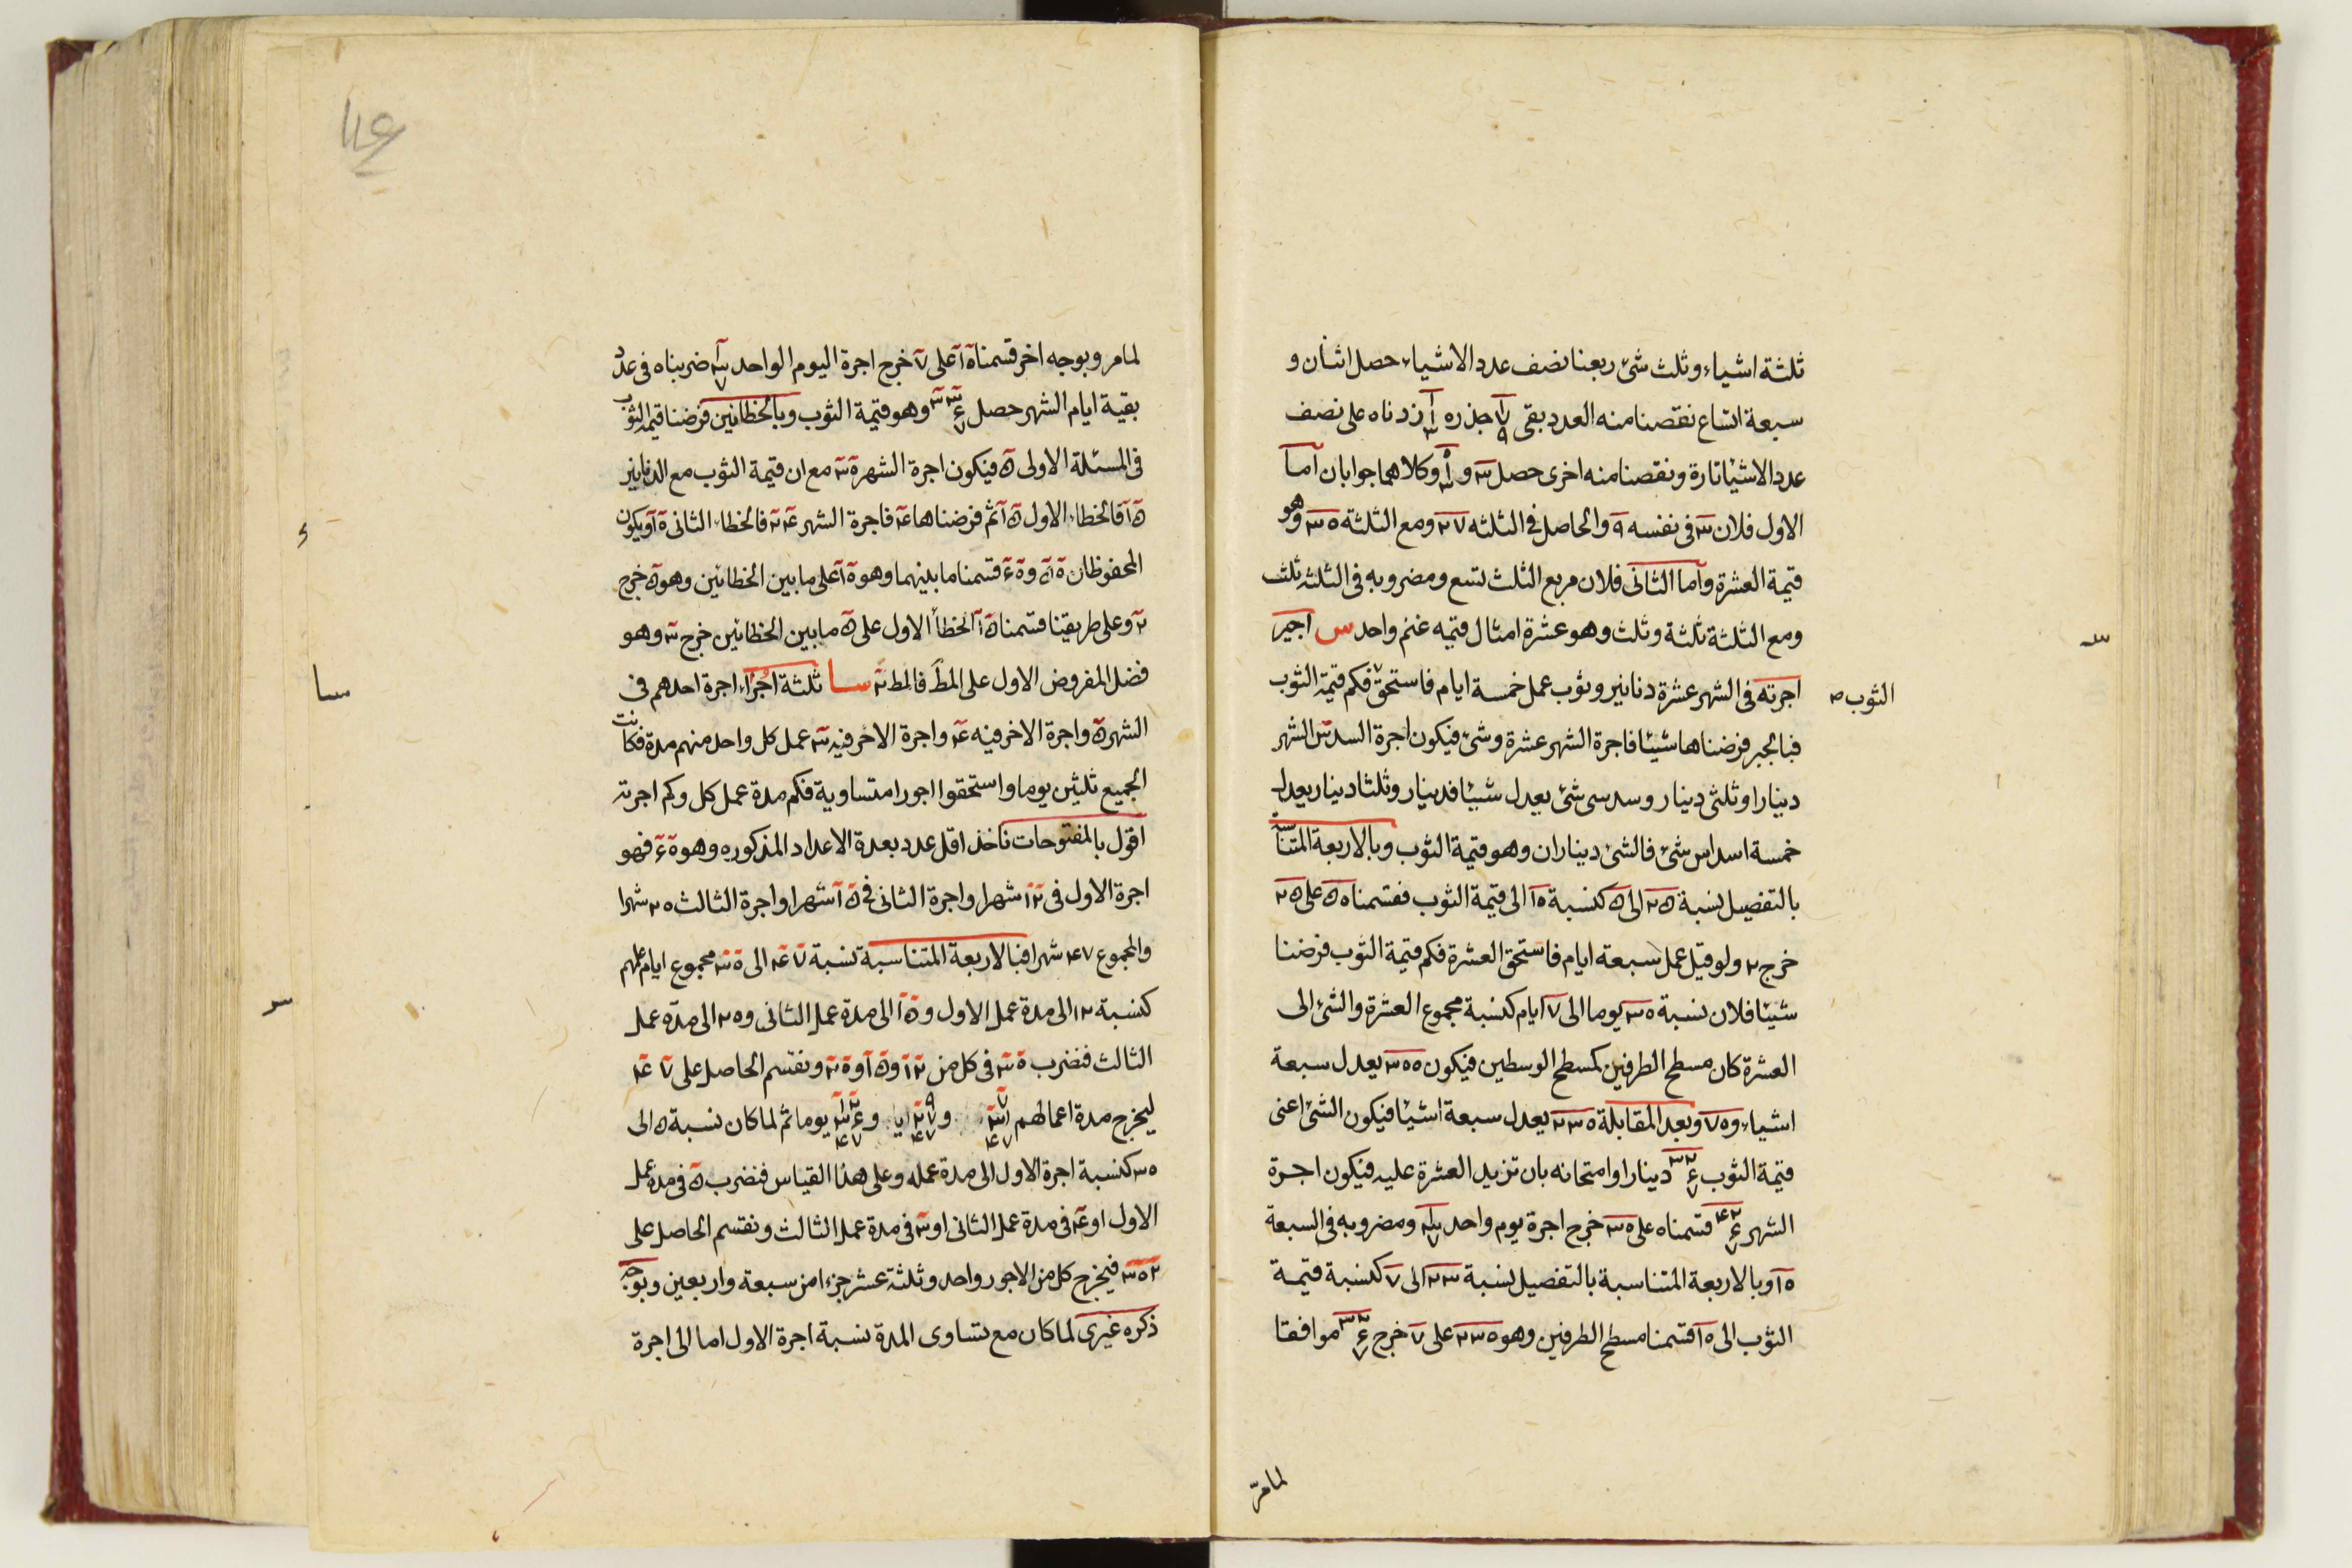 ثلثة اشياء وثلث شئ ربعنا نصف عدد الاشياء حصل اثنان و
سبعة اتساع نقصنا منه العدد بقى جذره زدناه على نصف
عدد الاشيا تارة ونقصنا منه اخرى حصل ٣ و وكلاهما جوابان اما
الاول فلان ٣ فى نفسه ٩ والحاصل فى الثلثه ٢٧ ومع الثلثة ٣٠ وهو
قيمة العشرة واما الثانى فلان مربع الثلث تسع ومضروبه فى الثلثه ثلث
ومع الثلثة ثلثة وثلث وهو عشرة امثال قيمه غنم واحد س اجير
اجرته فى الشهر عشرة دنانير وثوب عمل خمسة ايام فاستحق فكم قيمة الثوب
الثوب ص
فبالجبر فرضناها شيئا فاجرة الشهر عشرة وشئ فيكون اجرة السدس الشهر
دينارا وثلثى دينار وسدسى شئ يعدل شيئا فدينار وثلثا دينار يعدل
خمسة اسداس شئ فالشئ ديناران وهو قيمة الثوب وبالاربعة المتناسبة
بالتفصيل نسبة ٢٥ الى ٥ كنسبة ١٠ الى قيمة الثوب فقسمنا ٥٠ على ٢٥
خرج ٢ ولو قيل عمل سبعة ايام فاستحق العشرة فكم قيمة الثوب فرضنا
شيئا فلان نسبة ٣٠ يوما الى ٧ ايام كنسبة مجموع العشرة والشئ الى
العشرة كان مسطح الطرفين كمسطح الوسطين فيكون ٣٠٠ يعدل سبعة
اشياء و ٧٠ وبعد المقابلة ٢٣٠ يعدل سبعة اشيا فيكون الشئ اعنى
قيمة الثوب دينارا وامتحانه بان تزيد العشرة عليه فيكون اجرة
الشهر قسمناه على ٣٠ خرج اجرة يوم واحد ومضروبه فى السبعة
١٠ وبالاربعة المتناسبة بالتفصيل نسبة ٢٣ الى ٧ كنسبة قيمة
الثوب الى ١٠ قسمنا مسطح الطرفين وهو ٢٣٠ على ٧ خرج موافقا
لما مرّ
لما مر وبوجه اخر قسمنا ١٠ على ٧ خرج اجرة اليوم الواحد ضربناه فى عدد
بقية ايام الشهر حصل وهو قيمة الثوب وبالخطائين فرضنا قيمة الثوب
فى المسئلة الاولى ٥ فيكون اجرة الشهر ٣٠ مع ان قيمة الثوب مع الدنانير
١٥ فالخطاء الاول ١٥ ثم فرضناها ٤ فاجرة الشهر ٢٤ فالخطاء الثانى ١٠ ويكون
المحفوظان ٥٠ و ٦٠ قسمنا ما بينهما وهو ١٠ على ما بين الخطائين وهو ٥ خرج
٢ وعلى طريقتنا قسمنا ١٥ الخطأ الاول على ٥ ما بين الخطائين خرج ٣ وهو
فضل المفروض الاول على المط فالمط ٢ سا ثلثة اجراء اجرة احدهم فى
سا
الشهر ٥ واجرة الاخر فيه ٤ واجرة الاخر فيه ٣ عمل كل واحد منهم مدة فكانت
الجميع ثلثين يوما واستحقوا اجورا متساوية فكم مدة عمل كل وكم اجرته
اقول بالمفتوحات ناخذ اقل عدد يعده الاعداد المذكوره وهو ٦٠ فهو
اجرة الاول فى ١٢ شهرا واجرة الثانى فى ١٥ شهرا واجرة الثالث ٢٠ شهرا
والمجموع ٤٧ شهرا فبالاربعة المتناسبة نسبة ٤٧ الى ٣٠ مجموع ايام عملهم
كنسبة ١٢ الى مدة عمل الاول و ١٥ الى مدة عمل الثانى و ٢٠ الى مدة عمل
الثالث فنضرب ٣٠ فى كل من ١٢ و ١٥ و ٢٠ ونقسم الحاصل على ٤٧
ليخرج مدة اعمالهم و و يوما ثم لما كان نسبة ٥ الى
٣٠ كنسبة اجرة الاول الى مدة عمله وعلى هذا القياس فنضرب ٥ فى مدة عمل
الاول او ٤ فى مدة عمل الثانى او ٣ فى مدة عمل الثالث ونقسم الحاصل على
فيخرج كل من الاجور واحد وثلثة عشر جزءا من سبعة واربعين وبوجه
ذكره غيرى لما كان مع تساوى المدة نسبة اجرة الاول اما الى اجرة